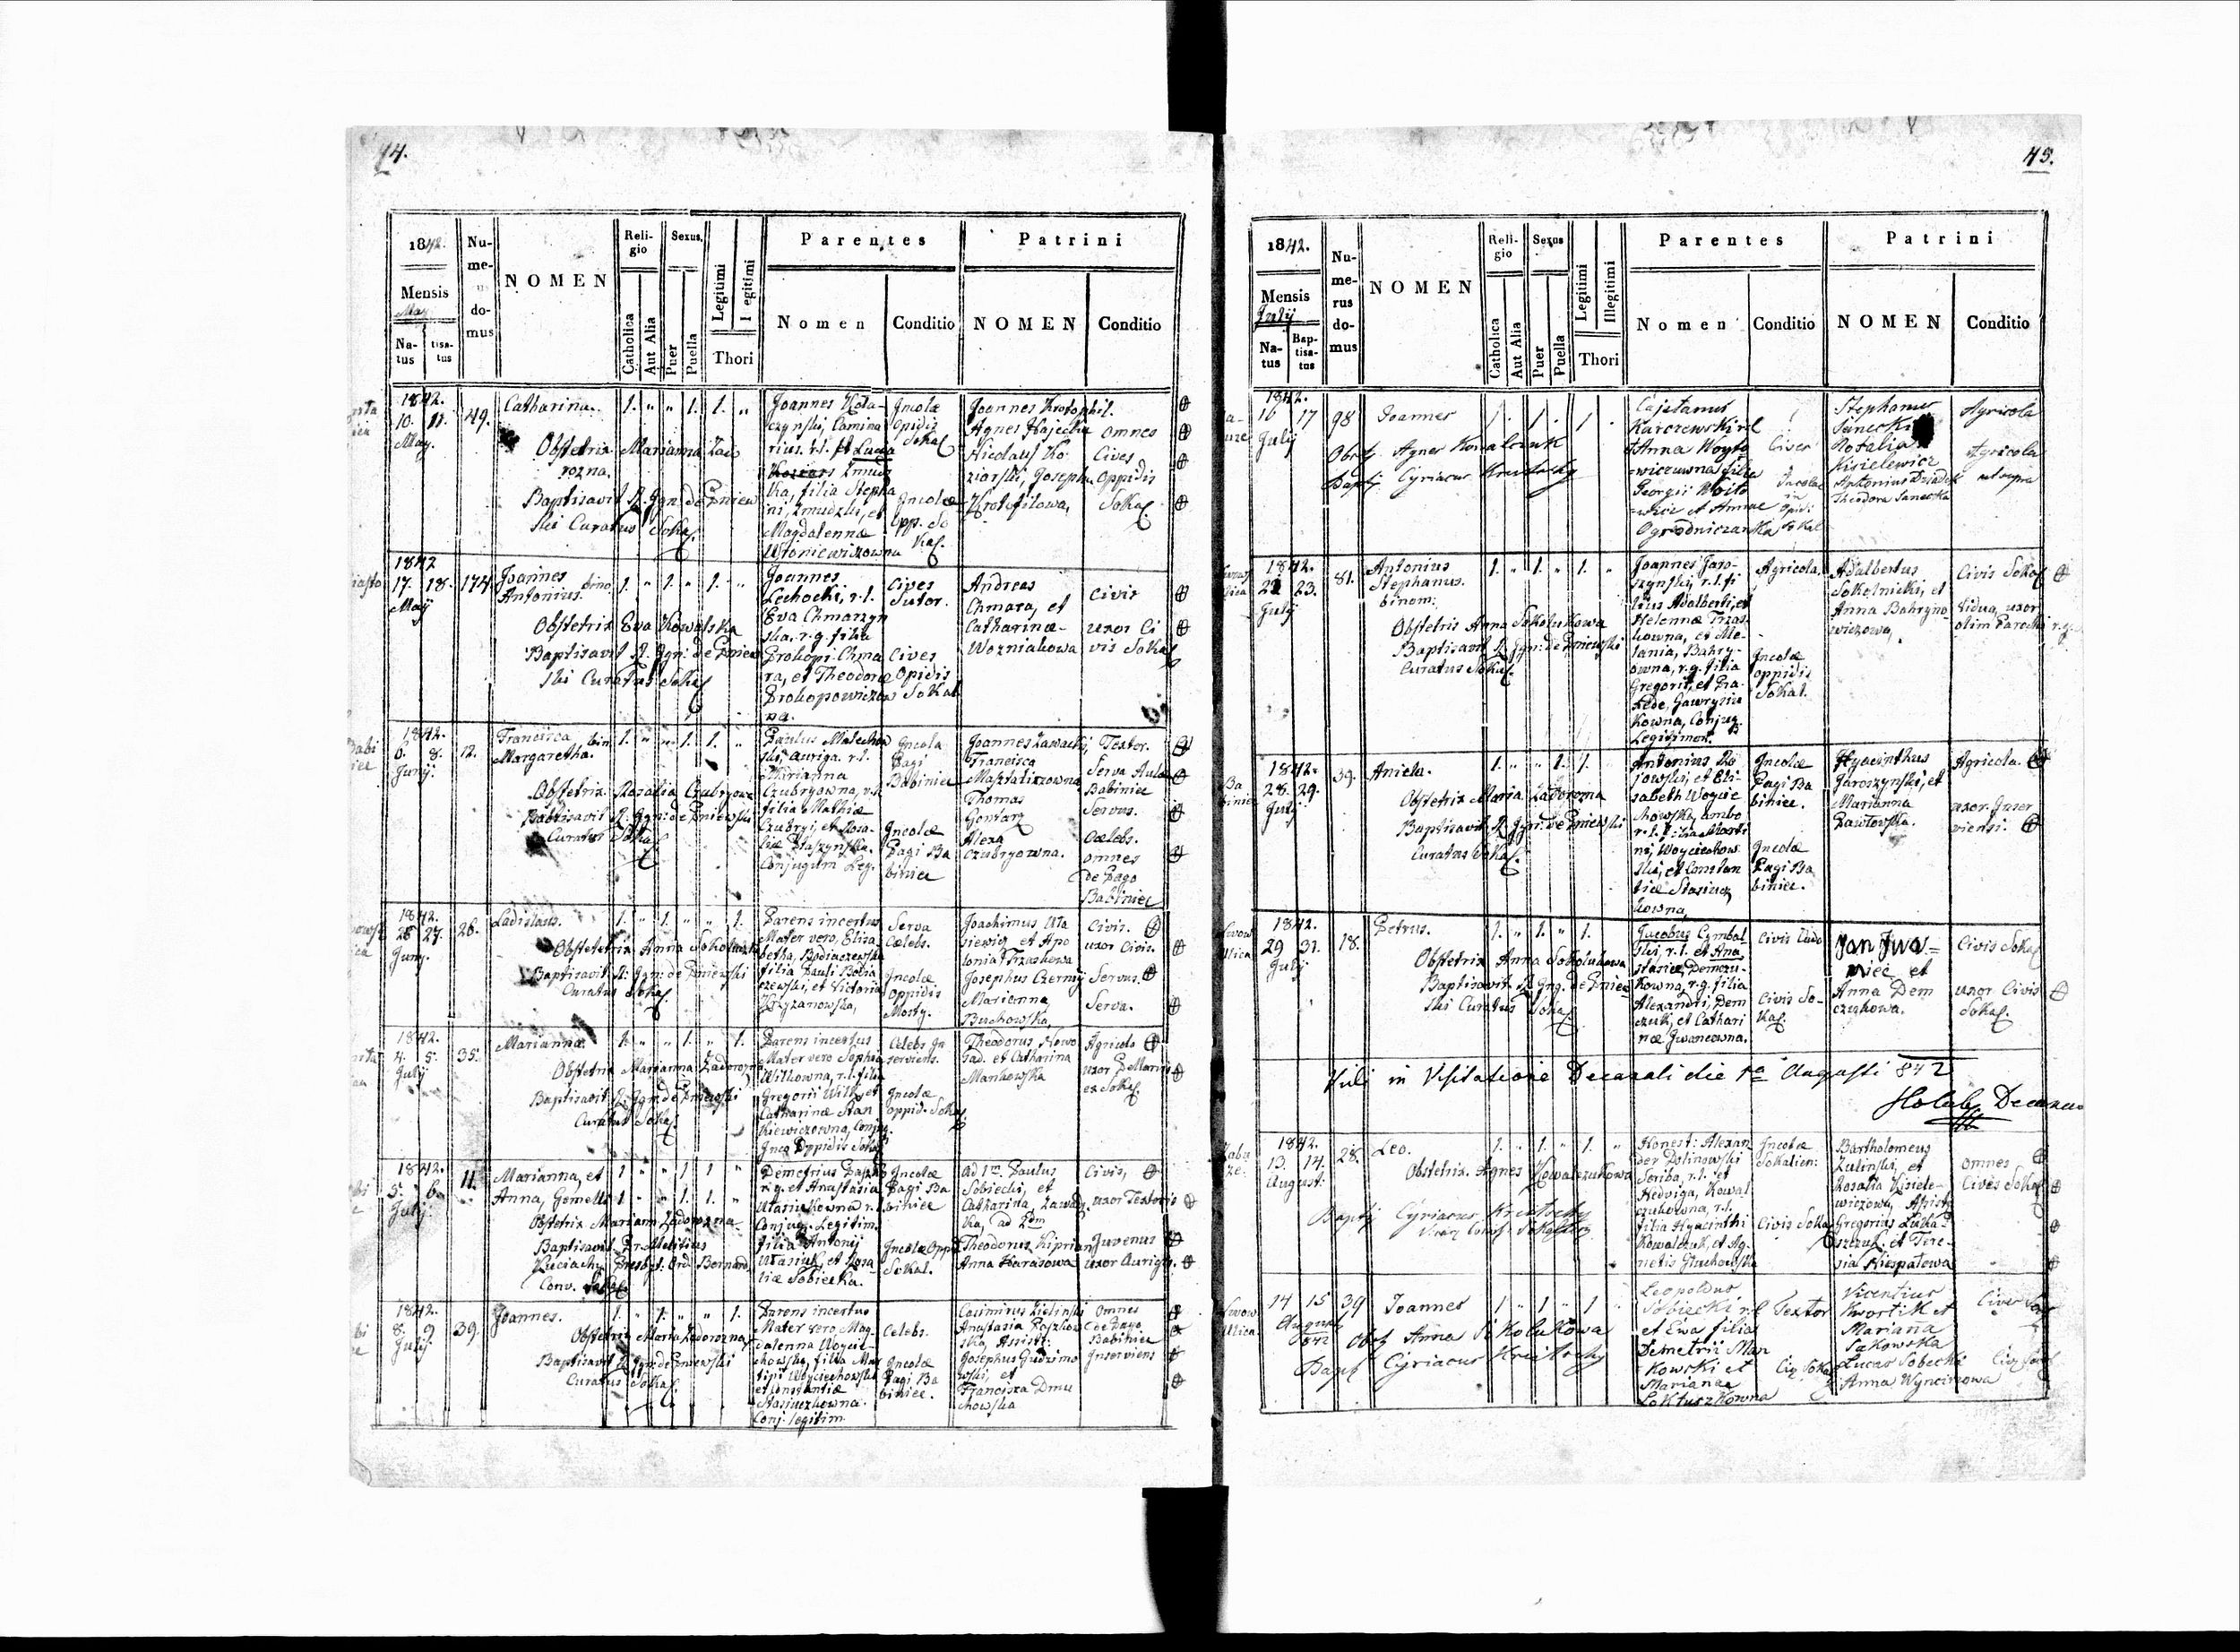 44.
1842.
Mensis
May
Natus
tisatus
Nume
domus
NOMEN
Religio
Catholica
Aut Alia
Sexus
Puer
Puella
Legitimi
Thori
Parentes
Nomen
Conditio
Patrini
NOMEN
Conditio
1842.
10. 11. 49. Catharina. 1. " " 1. 1. "
May.
Obstetrix Marianna Zado
rozna.
Baptisavit R. Ign: de Pniew
ski Curatus Sokal.
Joannes Kola-
czynski, Camina
rius. r.l. et Lucia
Zmudz
ka, filia Stepha
ni, Zmudzki, et
Magdalennæ
Incolæ
Opidis
Sokal
Incolæ
Opp. So
kal.
Joannes Krotophil.
Agnes Hajecka
Nicolaus Ko
ziarski, Josepha
Krotofilowa,
omnes
Cives
Oppidis
Sokal.
1842
17. 18. 174. Joannes bino 1. " 1. " 1. "
May Antonius.
Obstetrix Eva Kowalska
Baptisavit R. Ign: de Pniew
ski Curatus Sokal
Joannes
Lechocki, r.l.
Eva Chmarzyn
ska. r.g. filia
Prokopi Chma
ra, et Theodoræ
Prokopowiczow
na.
Cives
Sutor.
Cives
Opidis
Sokal
Andreas
Chmara, et
Catharinæ-
Wozniakowa
Civis
uxor Ci
vis Sokal
1842.
6. 8. 12. Francisca bin 1. " " 1. 1. "
Junij. Margaretha.
Obstetrix Rosalia Czubryowa
Baptisavit R. Ign: de Pniewski
Curatus Sokal
Paulus Malechow
ski, auriga. r.l.
Marianna
Czubryowna, r.l.
filia Mathiæ
Czubryi, et Rosa-
liæ Ptaszynska.
Conjugum Leg.
Incola
Pagi
Babiniec
Incolæ
Pagi Ba
biniec
Joannes Zawacki,
Francisca
Masztalirzowna
Thomas
Gontarz
Alexa
Czubryowna.
Textor.
Serva Aulæ
Babiniec
Servus.
Cælebs.
omnes
de Pago
Babiniec
1842.
26 27. 26. Ladislaus. 1. " 1. " " 1.
Junij.
Obstetetrix Anna Sokoluk
Baptisavit R. Ign: de Pniewski
Curatus Sokal
Parens incertus
Mater vero, Eliza
betha, Bodiaczewska
filia Pauli Bodia
czewski, et Victoria
Krzyzanowska,
Serva
Cælebs.
Incolæ
oppidis
Mosty.
Joachimus Uta
siewicz et Apo
lonia Trzaskowa
Josephus Czernij
Marianna
Buchowska,
Civis.
uxor Civis.
Servus.
Serva.
1842.
4. 5. 35. Marianna 1. " " 1. " 1.
Julij
Obstetrix Marianna Zadorozna
Baptisavit R. Ign: de Pniewski
Curatus Sokal.
Parens incertus
Mater vero Sophia
Wilkowna, r.l. filia
Gregorii Wilk, et
Catharinæ Stan
kiewiczowna, Conjug.
Inco Oppidis Sokal
Celebs In
serviens.
Incolæ
oppid. Sokal
Theodorus Nowo
sad. et Catharina
Mankowska
Agricola
uxor
ex Sokal.
1842.
5. 6. 11. Marianna, et 1 " " 1 1 "
Julij Anna, Gemelli 1 " " 1. 1. "
Obstetrix Mariam Zadorozna
Baptisavit Pr. Melitius
Kuciach Presbyt. Ord. Bernard.
Conv. Sokal
Demetrius
r.g. et Anastasia
Utasiukowna r.l.
Conjug. Legitim.
filia Antonij
Utasiuk, et Rosa-
liæ Sobiecka.
Incolæ
Pagi Ba
biniec
Incolæ Opp.
Sokal.
ad 1m. Paulus
Sobiecki, et
Catharina Zawadz
ka, ad 2dm
Theodorus Kiprian
Anna Harasowa
Civis,
uxor Textoris
Juvenus
uxor Aurigæ.
1842.
8. 9. 39. Joannes. 1. " 1. " " 1.
Julij
Obstetrix Maria Zadorozna
Baptisavit R. Ign: de Pniewski
Curatus Sokal.
Parens incertus
Mater vero Mag-
dalenna Woycie-
chowska, filia Mar
tini Woyciechowski
et Constantiæ
Stasiuczkowna.
Conj. legitim.
Celebs.
Incolæ
Pagi Ba
biniec.
Casimirus Zielinski
Anastasia Paszkow
ska, Assist:
Josephus Gudzimo
wski, et
Francisca Dmu
chowska
Omnes
de Pago
Babiniec
Inserviens
45.
1842.
Mensis
Julij
Natus
Baptisatus
Numerus
domus
NOMEN
Religio
Catholica
Aut Alia
Sexus
Puer
Puella
Legitimi
Illegitimi
Thori
Parentes
Nomen
Conditio
Patrini
NOMEN
Conditio
1842.
16 17 98 Joannes 1. . 1. . 1 .
Julij
Obst. Agnes Kowalczuk
Bapt. Cyriacus
Cajetanus
Karczewski r.l
Anna Woyto
wiczowna filia
Georgii Woito
wicz et Annae
Ogrodniczanka
Cives
Incolae
in
Opidi
Sokal
Stephanus
Janecki
Rosalia
Kisielewicz
Antonius Dziadek
Theodora Janecka
Agricola
Agricola
ut supra
1842.
21 23. 81. Antonius 1. " 1. " 1. "
Julij Stephanus.
binom:
Obstetrix Anna Sokolukowa
Baptisavit R. Ign: de Pniewski
Curatus Sokal.
Joannes Jaro-
szynski, r.l. fi
lius Adalberti, et
Helennæ Trzas-
kowna, et Me-
lania, Bahry-
owna, r.g. filia
Gregorii, et Pra-
xede, Gawrysiu
kowna, Conjug.
Legitimor.
Agricola.
Incolæ
oppidis
Sokal.
Adalbertus
Sokolnicki, et
Anna Bahryno
wiczowa,
Civis Sokal
Vidua, uxor
olim Parochi r.g.
1842.
28. 29. 39. Aniela. 1. " " 1. 1.
Julij
Obstetrix Maria Zadorozna
Baptisavit R. Ign: de Pniewski
Curatus Sokal.
Antonius Ro
jowski, et Eli-
sabeth Woycie
chowska, ambo
r.l. filia Marti
ni, Woyciechow
ski, et Constan
tiæ Stasiucz
kowna,
Incolæ
Pagi Ba
biniec.
Incolæ
Pagi Ba
biniec.
Hyacinthus
Jaroszynski, et
Marianna
Pawlowska.
Agricola.
uxor. Inser
viensi.
1842.
29 31. 18. Petrus. 1. " 1. " 1.
Julij
Obstetrix Anna Sokolukowa
Baptisavit R. Ign. de Pniew
ski Curatus Sokal
Jacobus Cymbal
ski, r.l. et Ana
stasiæ, Demczu-
kowna, r.g. filia
Alexandri, Dem
czuk, et Cathari
næ Iwancowna.
Civis Ludo
Civis So-
kal.
Jan Iwa=
niec et
Anna Dem
czukowa.
Civis Sokal
uxor Civis
Sokal.
Vidi in Visitatione Decanali die 1a Augusti 842
Holub Decanus
1842.
13. 14. 28. Leo. 1. " 1. " 1. "
August.
Obstetrix. Agnes Kowalczukowa
Bapt. Cyriacus
Honest: Alexan
der Dolinowski
Scriba, r.l. et
Hedviga, Kowal
czukowna, r.l.
filia Hyacinthi
Kowalczuk, et Ag-
netis Gluchowska
Incolæ
Sokalien:
Civis Sokal
Bartholomeus
Zulinski, et
Rosalia Kisiele-
wiczowa, Assist.
Gregorius Luka-
szczuk. et Tere-
sia
omnes
Cives Sokal
14 15 39 Joannes 1 " 1 " 1 "
August
842
Obst Anna Sokolukowa
Bapt Cyriacus
Leopoldus
Sobiecki r.l
et Ewa filia
Demetrii Man
kowski et
Marianae
Loktuszkowna
Textor
Civ Sokal
Vicentius
Kwortik et
Mariana
Sakowska
Lucas Sobecki
Anna
Cives